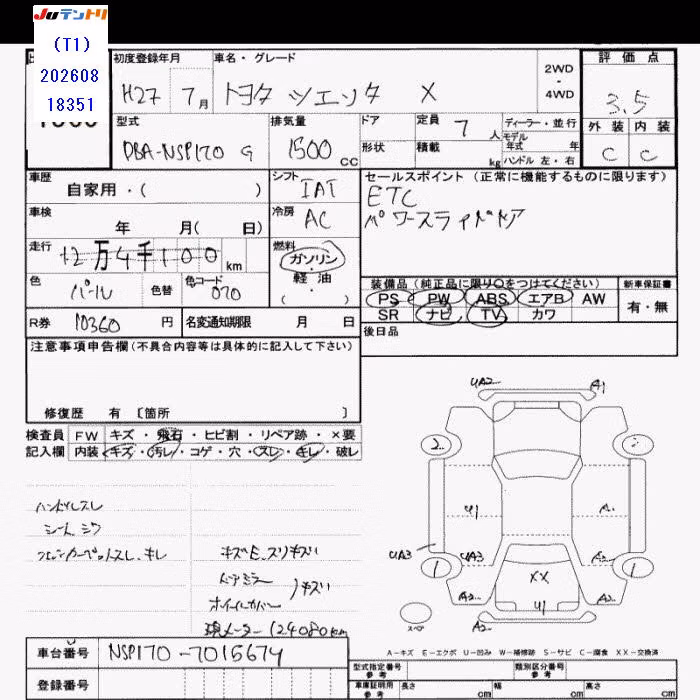 Juテントリ
(T1)
202608
18351
初度登録年月
H27 7月
車名・グレード
トヨタ シエンタ X
2WD
・
4WD
評価点
3.5
外装 内装
C C
型式
DBA-NSP170 G
排気量
1500 CC
ドア
形状
定員 7 人
積載 kg
ディーラー・並行
モデル
年式 年
ハンドル 左・右
車歴
自家用・( )
シフト
IAT
セールスポイント (正常に機能するものに限ります)
ETC
パワースライドドア
車検
年 月( 日)
冷房
AC
走行
12万4千100 km
燃料
ガソリン
・
軽油
・
( )
色
パール
色替
色コード
070
装備品 (純正品に限り○をつけてください)
新車保証書
PS PW ABS エアB AW
SR ナビ TV カワ
有・無
R券 10360 円
名変通知期限 月 日
後日品
注意事項申告欄(不具合内容等は具体的に記入して下さい)
修復歴 有 [箇所 ]
検査員
記入欄
FW キズ・飛石・ヒビ割・リペア跡・×要
内装 キズ・汚レ・コゲ・穴・スレ・キレ・破レ
ハンドルスレ
シートシワ
フロアカーペットスレ、キレ
キズE、スリキズい
ドアミラー
ホイールカバー
)キズい
現メーター124080km
UA2
A1
2
2
U1
A
UA3
UA3
A2
1
1
XX
U1
A2
A2
スペ
A2
A-キズ E-エクボ U-凹み W-補修跡 S-サビ C-腐食 XX-交換済
車台番号
NSP170-7015674
登録番号
型式指定番号
参考
類別区分番号
参考
車庫証明用
参考
長さ cm
幅 cm
高さ cm